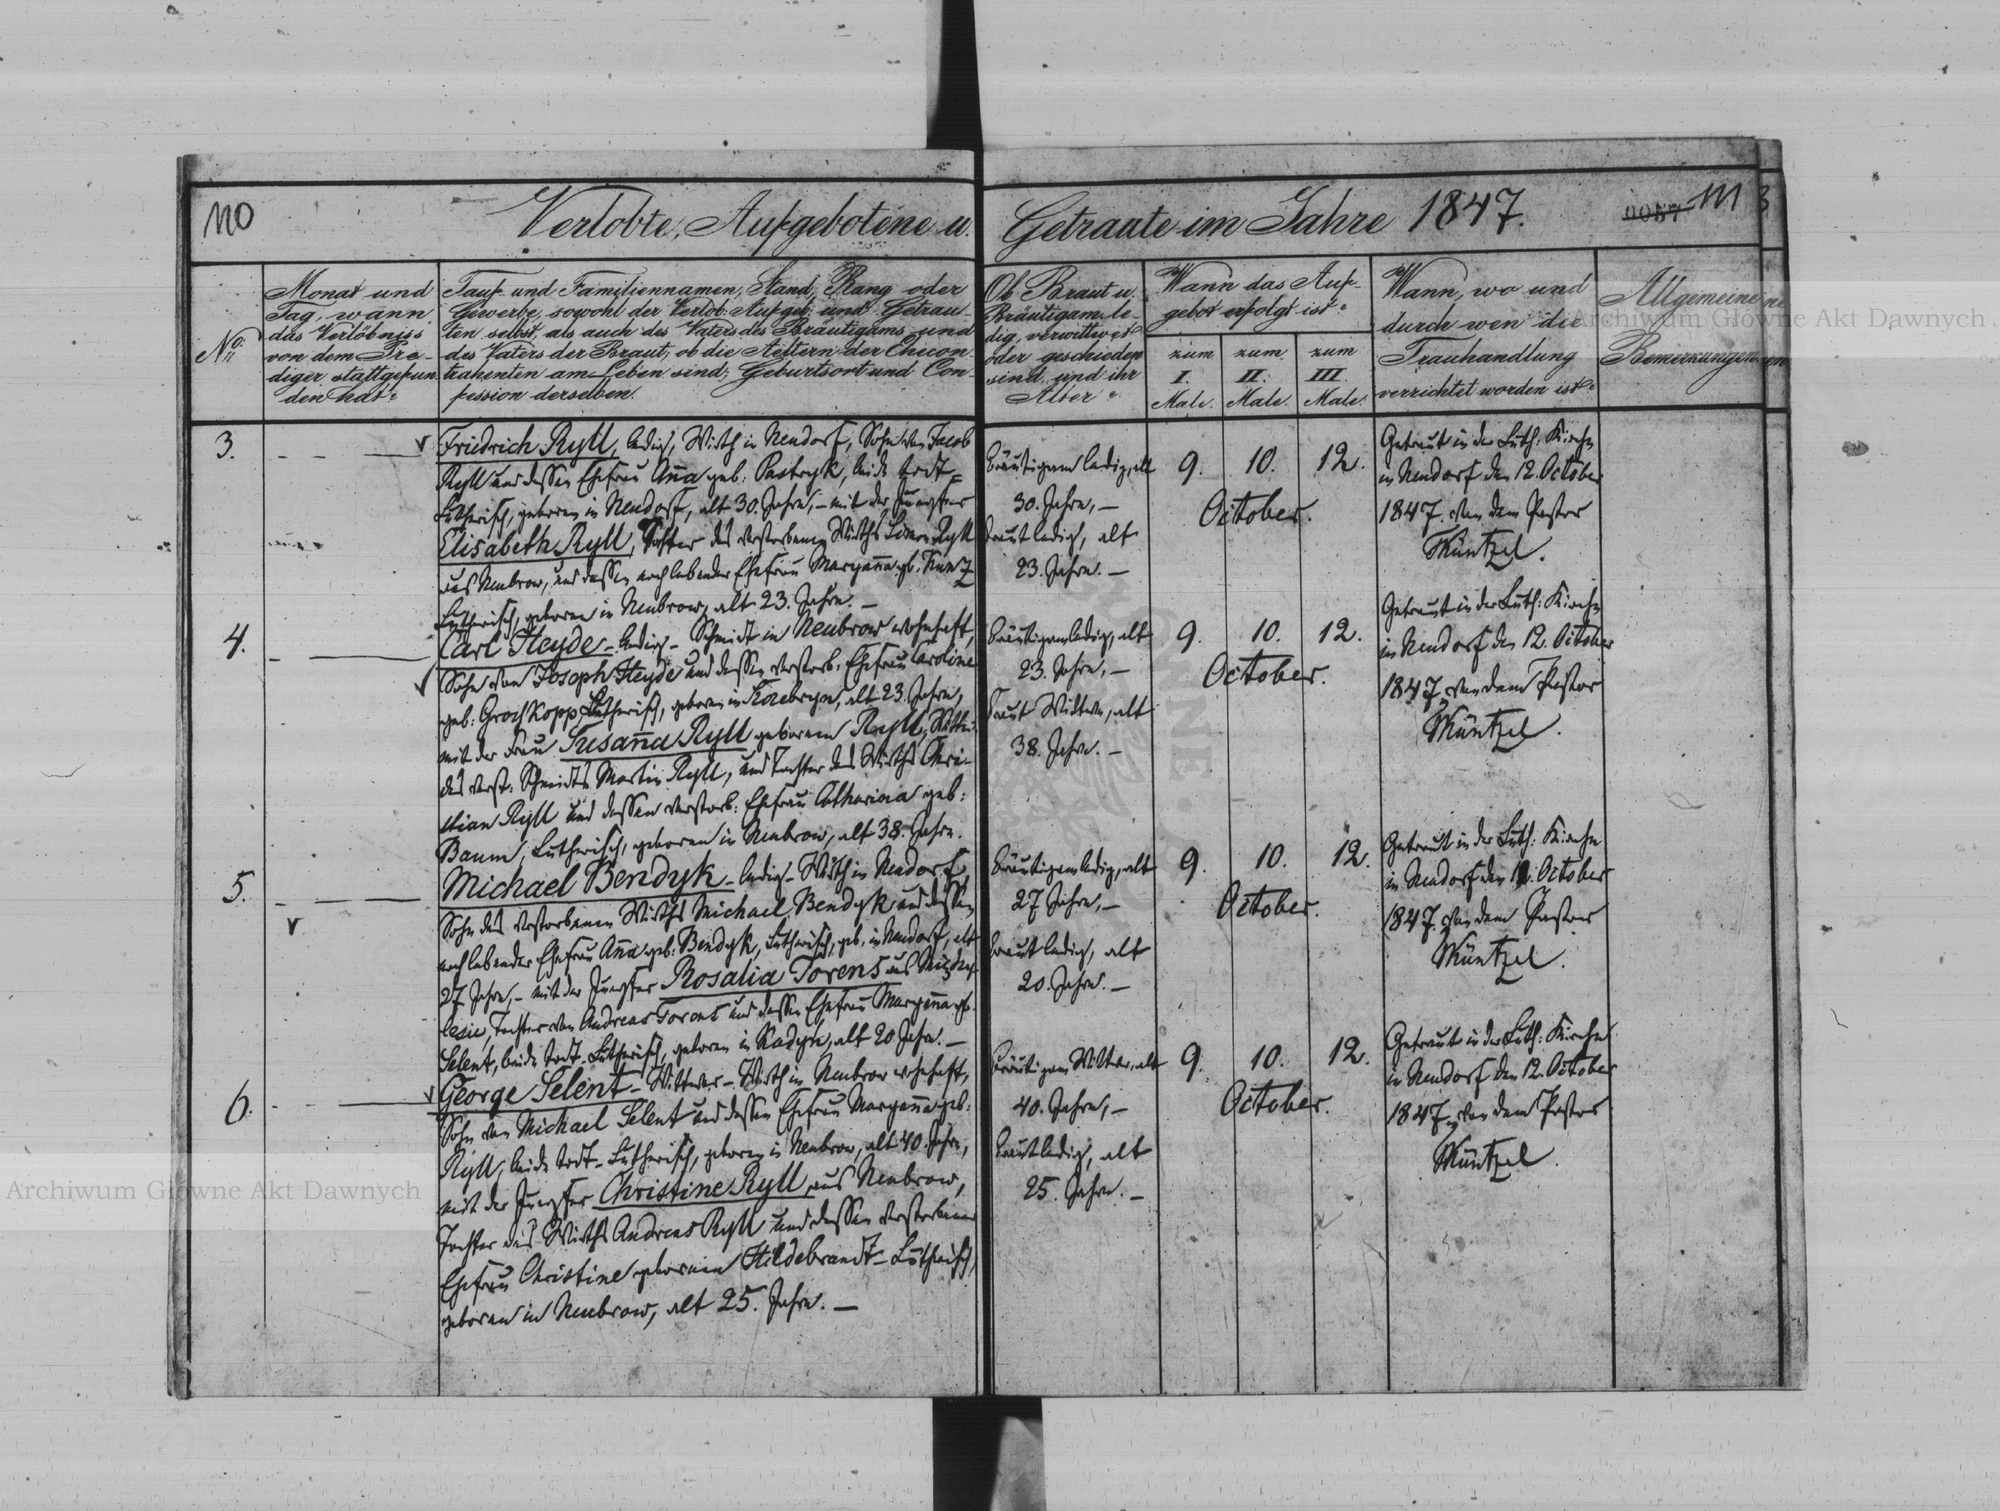 110
Verlobte, Aufgebotene u.
Getraute im Jahre 1847.
0057
111
No.
Monat und
Tag, wann
das Verlöbniss
von dem Pre-
diger stattgefun-
den hat?
Tauf- und Familiennamen, Stand, Rang oder
Gewerbe, sowohl der Verlob: Aufgeb: und Getrau-
ten selbst, als auch des Vaters des Bräutigams und
des Vaters der Braut; ob die Aeltern der Ehecon-
trahenten am Leben sind; Geburtsort und Con-
fession derselben.
Ob Braut u.
Bräutigam le-
dig, verwittwet
oder geschieden
sind, und ihr
Alter?
Wann das Auf-
gebot erfolgt ist?
zum I. Male.
zum II. Male.
zum III. Male.
Wann, wo und
durch wen die
Trauhandlung
verrichtet worden ist?
Allgemeine
Bemerkungen
3.
Friedrich Ryll, ledig, Wirth in Neudorf, Sohn von Jacob
Ryll und dessen Ehefrau Anna geb: Pastryk, beide todt –
Lutherisch, geboren in Neudorf, alt 30. Jahre, – mit der Jungfer
Elisabeth Ryll, Tochter des verstorbenen Wirths Simon Ryll
aus Neubrow, und dessen noch lebender Ehefrau Maryanna gb. Kunz
Lutherisch, geboren in Neubrow, alt 23. Jahre. –
Bräutigam ledig, alt
30. Jahre, –
Braut ledig, alt
23. Jahre. –
9. 10. 12.
October.
Getraut in der Luth: Kirche
in Neudorf den 12. October
1847. von dem Pastor
Müntzel.
4.
Carl Heyde – ledig – Schmidt in Neubrow wohnhaft,
Sohn von Joseph Heyde und dessen verstorb: Ehefrau Caroline
geb: Grochkopp, Lutherisch, geboren in alt 23. Jahre,
mit der Frau Susanna Ryll geborenen Ryll, Wittwe
des verst: Schmidts Martin Ryll, und Tochter des Wirths Chri-
stian Ryll und dessen verstorb: Ehefrau Catharina geb:
Baum, Lutherisch, geboren in Neubrow, alt 38. Jahre.
Bräutigam ledig, alt
23. Jahre, –
Braut Wittwe, alt
38. Jahre. –
9. 10. 12.
October.
Getraut in der Luth: Kirche
in Neudorf den 12. October
1847. von dem Pastor
Müntzel.
5.
Michael Bendyk – ledig – Wirth in Neudorf,
Sohn des verstorbenen Wirths Michael Bendyk und dessen
noch lebender Ehefrau Anna geb: Bendyk, Lutherisch, geb. in Neudorf, alt
27 Jahre, – mit der Jungfer Rosalia Torens aus
Tochter von Andreas Torens und dessen Ehefrau Maryanna gb.
Selent, beide todt – Lutherisch, geboren in alt 20 Jahre. –
Bräutigam ledig, alt
27 Jahre, –
Braut ledig, alt
20. Jahre. –
9. 10. 12.
October.
Getraut in der Luth: Kirche
in Neudorf den 12. October
1847. von dem Pastor
Müntzel.
6.
George Selent – Wittwer – Wirth in Neubrow wohnhaft,
Sohn von Michael Selent und dessen Ehefrau Maryanna geb:
Ryll, beide todt – Lutherisch, geboren in Neubrow, alt 40. Jahre,
mit der Jungfer Christine Ryll, aus Neubrow,
Tochter des Wirths Andreas Ryll und dessen verstorbener
Ehefrau Christine geborenen Hildebrandt – Lutherisch,
geboren in Neubrow, alt 25. Jahre. –
Bräutigam Wittwer, alt
40. Jahre, –
Braut ledig, alt
25. Jahre. –
9. 10. 12.
October.
Getraut in der Luth: Kirche
in Neudorf den 12. October
1847. von dem Pastor
Müntzel.
Archiwum Główne Akt Dawnych
Archiwum Główne Akt Dawnych